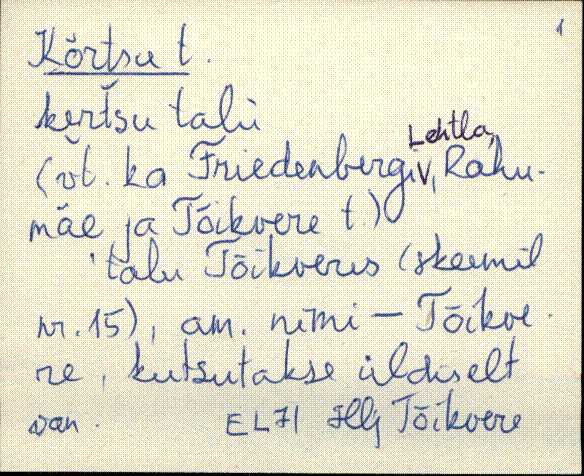 1
Kõrtsu t.
kertsu talù
Lehtla,
(vt. ka Friedenbergi, Rahu-
mäe ja Tõikvere t.)
talu Tõikveres (skeemil
nr. 15), am. nimi — Tõikve-
re, kutsutakse üldiselt
van. EL71 Hlj Tõikvere